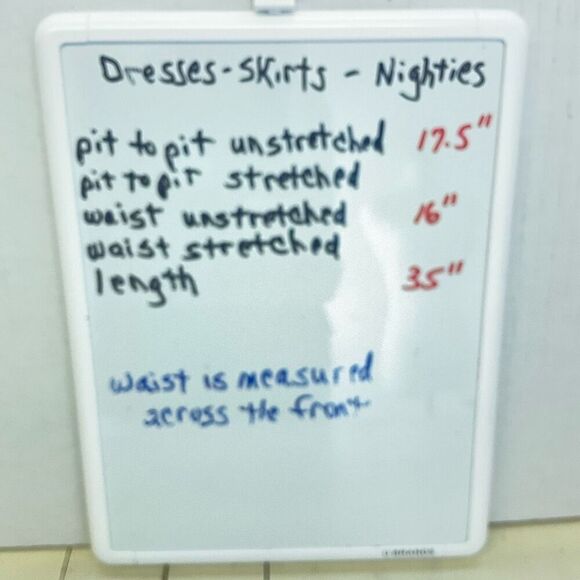 Dresses - Skirts - Nighties
pit to pit unstretched 17.5"
pit to pit stretched
waist unstretched 16"
waist stretched
length 35"
waist is measured
across the front